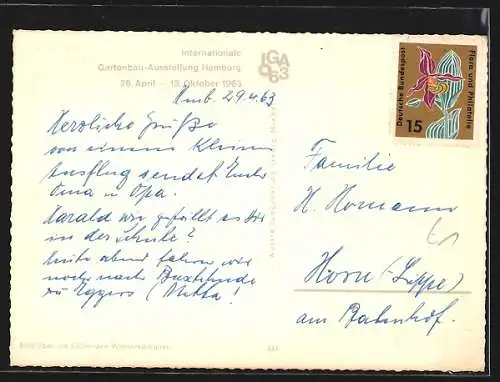 Internationale
Gartenbau-Ausstellung Hamburg
26. April – 13. Oktober 1963
IGA
63
Hmb. 29.4.63
Herzliche Grüße
von einem kleinen
Ausflug sendet Euch
Oma u. Opa.
Harald wie gefällt es Dir
in der Schule?
heute abend fahren wir
noch nach Buxtehude
zu Eggers (Metta!
Deutsche Bundespost
Flora und Philatelie
15
Familie
H. Homann
Horn (Lippe)
am Bahnhof.